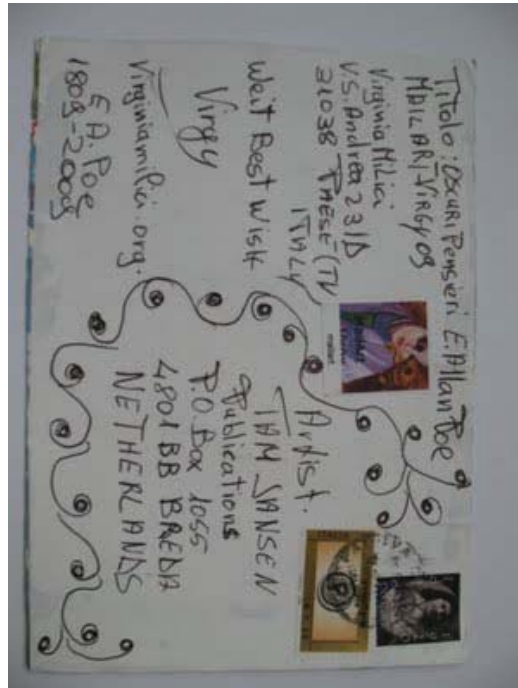 Titolo: Oscuri Pensieri E. Allan Poe
MAILART-VIRGY09
Virginia Milici
V.S. Andrea 23/D
31038 PAESE (TV
ITALY
Weit Best Wish
Virgy
Virginiamilici.org.
E A. Poe
1809-2009
mailart
Artist.
TAM JANSEN
Publications
P.O. Box 1055
4801 BB BREDA
NETHERLANDS
ITALIA